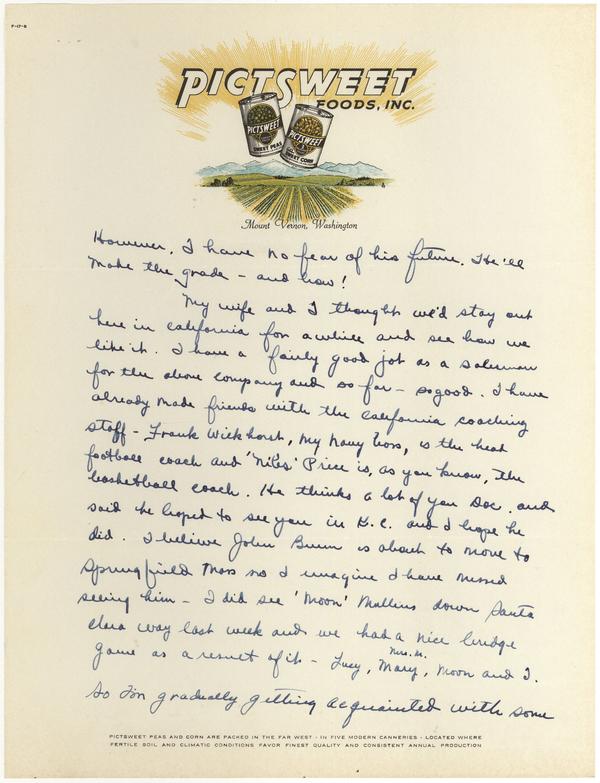 F-17-B
PICTSWEET
FOODS, INC.
PICTSWEET
SWEET PEAS
PICTSWEET
SWEET CORN
Mount Vernon, Washington
However, I have no fear of his future. He'll
make the grade - and how!
My wife and I thought we'd stay out
here in California for awhile and see how we
like it. I have a fairly good job as a salesman
for the above company and so far - so good. I have
already made friends with the California coaching
staff - Frank Wickhorst, my Navy boss, is the head
football coach and 'Nibs' Price is, as you know, the
basketball coach. He thinks a lot of you Doc. and
said he hoped to see you in K.C. and I hope he
did. I believe John Bunn is about to move to
Springfield Mass so I imagine I have missed
seeing him - I did see 'Moon' Mullins down Santa
Clara way last week and we had a nice bridge
game as a result of it - Lucy, Mary, Moon and I.
Mrs. M.
So I'm gradually getting acquainted with some
PICTSWEET PEAS AND CORN ARE PACKED IN THE FAR WEST - IN FIVE MODERN CANNERIES - LOCATED WHERE
FERTILE SOIL AND CLIMATIC CONDITIONS FAVOR FINEST QUALITY AND CONSISTENT ANNUAL PRODUCTION